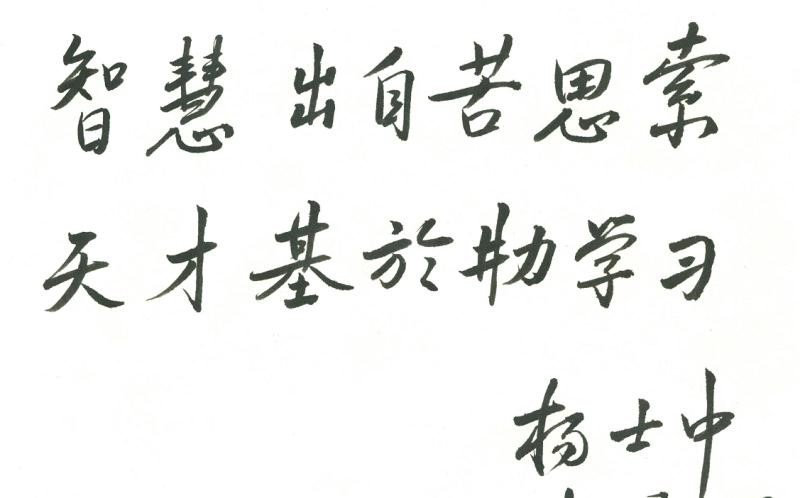 智慧出自苦思索
天才基於勤学习
杨士中